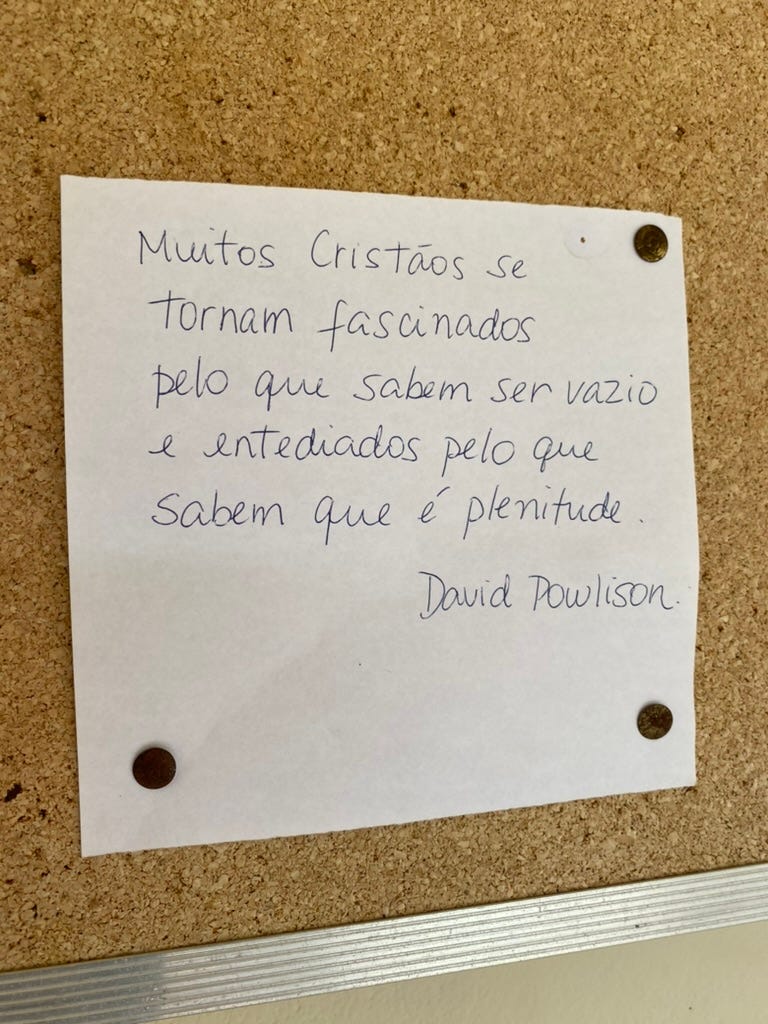 Muitos Cristãos se
tornam fascinados
pelo que sabem ser vazio
e entediados pelo que
sabem que é plenitude.
David Powlison.